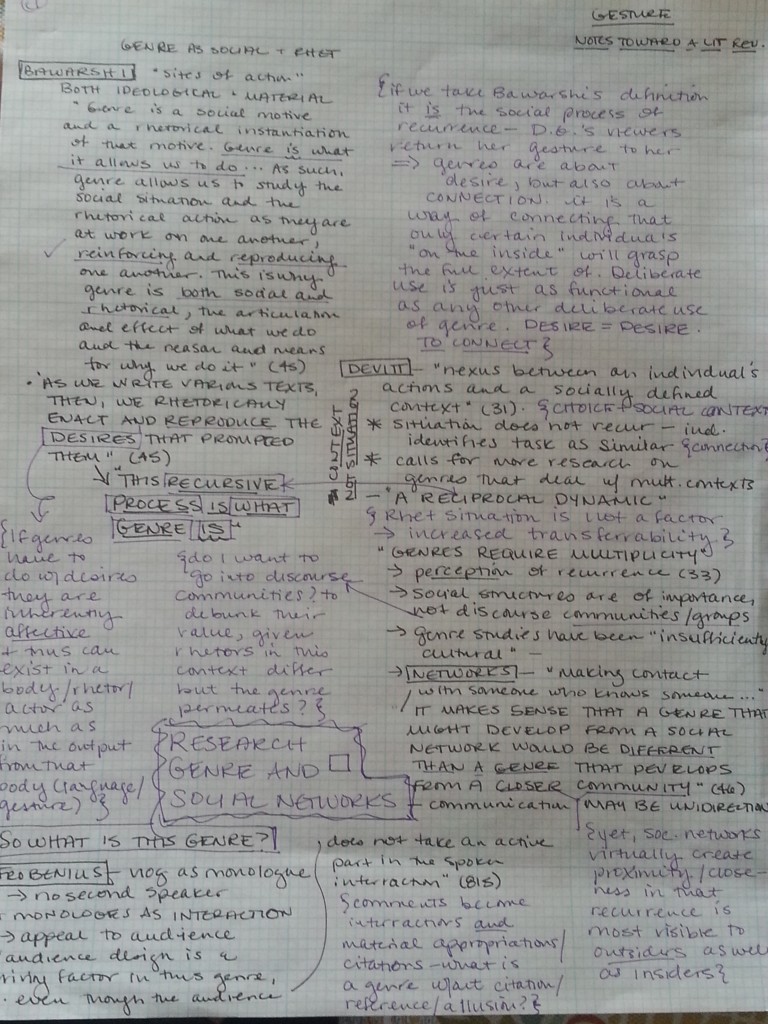 GESTURE
NOTES TOWARD A LIT REV.
GENRE AS SOCIAL + RHET
BAWARSHI "sites of action"
BOTH IDEOLOGICAL + MATERIAL
"Genre is a social motive
and a rhetorical instantiation
of that motive. Genre is what
it allows us to do... As such,
genre allows us to study the
social situation and the
rhetorical action as they are
at work on one another,
reinforcing and reproducing
one another. This is why
genre is both social and
rhetorical, the articulation
and effect of what we do
and the reason and means
for why we do it" (45)
• "AS WE WRITE VARIOUS TEXTS,
THEN, WE RHETORICALLY
ENACT AND REPRODUCE THE
DESIRES THAT PROMPTED
THEM" (45)
"THIS RECURSIVE
PROCESS IS WHAT
GENRE IS"
{If genres
have to
do w/ desires
they are
inherently
affective
+ thus can
exist in a
body/rhetor/
actor as
much as
in the output
from that
body (language/
gesture) }
{do I want to
go into discourse
communities? to
debunk their
value, given
rhetors in this
context differ
but the genre
permeates? }
RESEARCH
GENRE AND
SOCIAL NETWORKS
{if we take Bawarshi's definition
it is the social process of
recurrence – D.G.'s viewers
return her gesture to her
⇒ genres are about
desire, but also about
CONNECTION. it is a
way of connecting that
only certain individuals
"on the inside" will grasp
the full extent of. Deliberate
use is just as functional
as any other deliberate use
of genre. DESIRE = DESIRE.
TO CONNECT }
DEVITT – "nexus between an individual's
actions and a socially defined
context" (31). {CHOICE + SOCIAL CONTEXT
CONTEXT
NOT SITUATION
* situation does not recur – ind.
identifies task as similar {connection}
* calls for more research on
genres that deal w/ mult. contexts
– "A RECIPROCAL DYNAMIC"
{ Rhet situation is not a factor
→ increased transferrability. }
"GENRES REQUIRE MULTIPLICITY"
→ perception of recurrence (33)
→ Social structures are of importance,
not discourse communities/groups
→ genre studies have been "insufficiently
cultural" –
→ NETWORKS – "making contact
with someone who knows someone..."
IT MAKES SENSE THAT A GENRE THAT
MIGHT DEVELOP FROM A SOCIAL
NETWORK WOULD BE DIFFERENT
THAN A GENRE THAT DEVELOPS
FROM A CLOSER COMMUNITY" (46)
– communication MAY BE UNIDIRECTION
{yet, soc. networks
virtually create
proximity/close-
ness in that
recurrence is
most visible to
outsiders as well
as insiders}
SO WHAT IS THIS GENRE?
FROBENIUS – vlog as monologue
→ no second speaker
MONOLOGES AS INTERACTION
→ appeal to audience
"audience design is a
driving factor in this genre,
even though the audience
does not take an active
part in the spoken
interaction" (815)
{comments become
interactions and
material appropriations/
citations – what is
a genre w/out citation/
reference/allusion? }